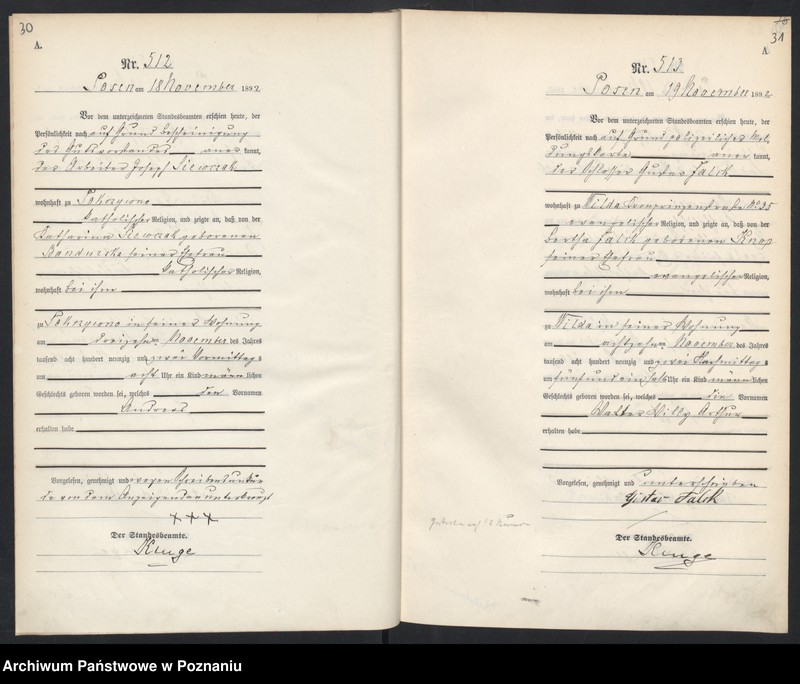 30
A.
Nr. 512
Posen am 18 November 1892
Vor dem unterzeichneten Standesbeamten erschien heute, der
Persönlichkeit nach auf Grund Bescheinigung
des Gutsvorstandes anerkannt,
der Arbeiter Josef
wohnhaft zu
katholischer Religion, und zeigte an, daß von der
Katharina geborenen
seiner Ehefrau
katholischer Religion,
wohnhaft bei ihm
zu in seiner Wohnung
am dreizehnten November des Jahres
tausend acht hundert neunzig und zwei Vormittags
um acht Uhr ein Kind männlichen
Geschlechts geboren worden sei, welches den Vornamen
Andreas
erhalten habe
Vorgelesen, genehmigt und wegen Schreibensunkun
de von dem Anzeigenden unterkreuzt
+++
Der Standesbeamte.
31
A
Nr. 513
Posen am 19 November 1892
Vor dem unterzeichneten Standesbeamten erschien heute, der
Persönlichkeit nach auf Grund polizeilicher Mel
dungskarte anerkannt,
der Schlosser Gustav Falck
wohnhaft zu Wilda Kronprinzenstraße No 35
evangelischer Religion, und zeigte an, daß von der
Bertha Falck geborenen Knop
seiner Ehefrau
evangelischer Religion,
wohnhaft bei ihm
zu Wilda in seiner Wohnung
am achtzehnten November des Jahres
tausend acht hundert neunzig und zwei Nachmittags
um fünf und ein halb Uhr ein Kind männlichen
Geschlechts geboren worden sei, welches die Vornamen
Walter Willy Arthur
erhalten habe
Vorgelesen, genehmigt und unterschrieben
Gustav Falck
Der Standesbeamte.
Archiwum Państwowe w Poznaniu